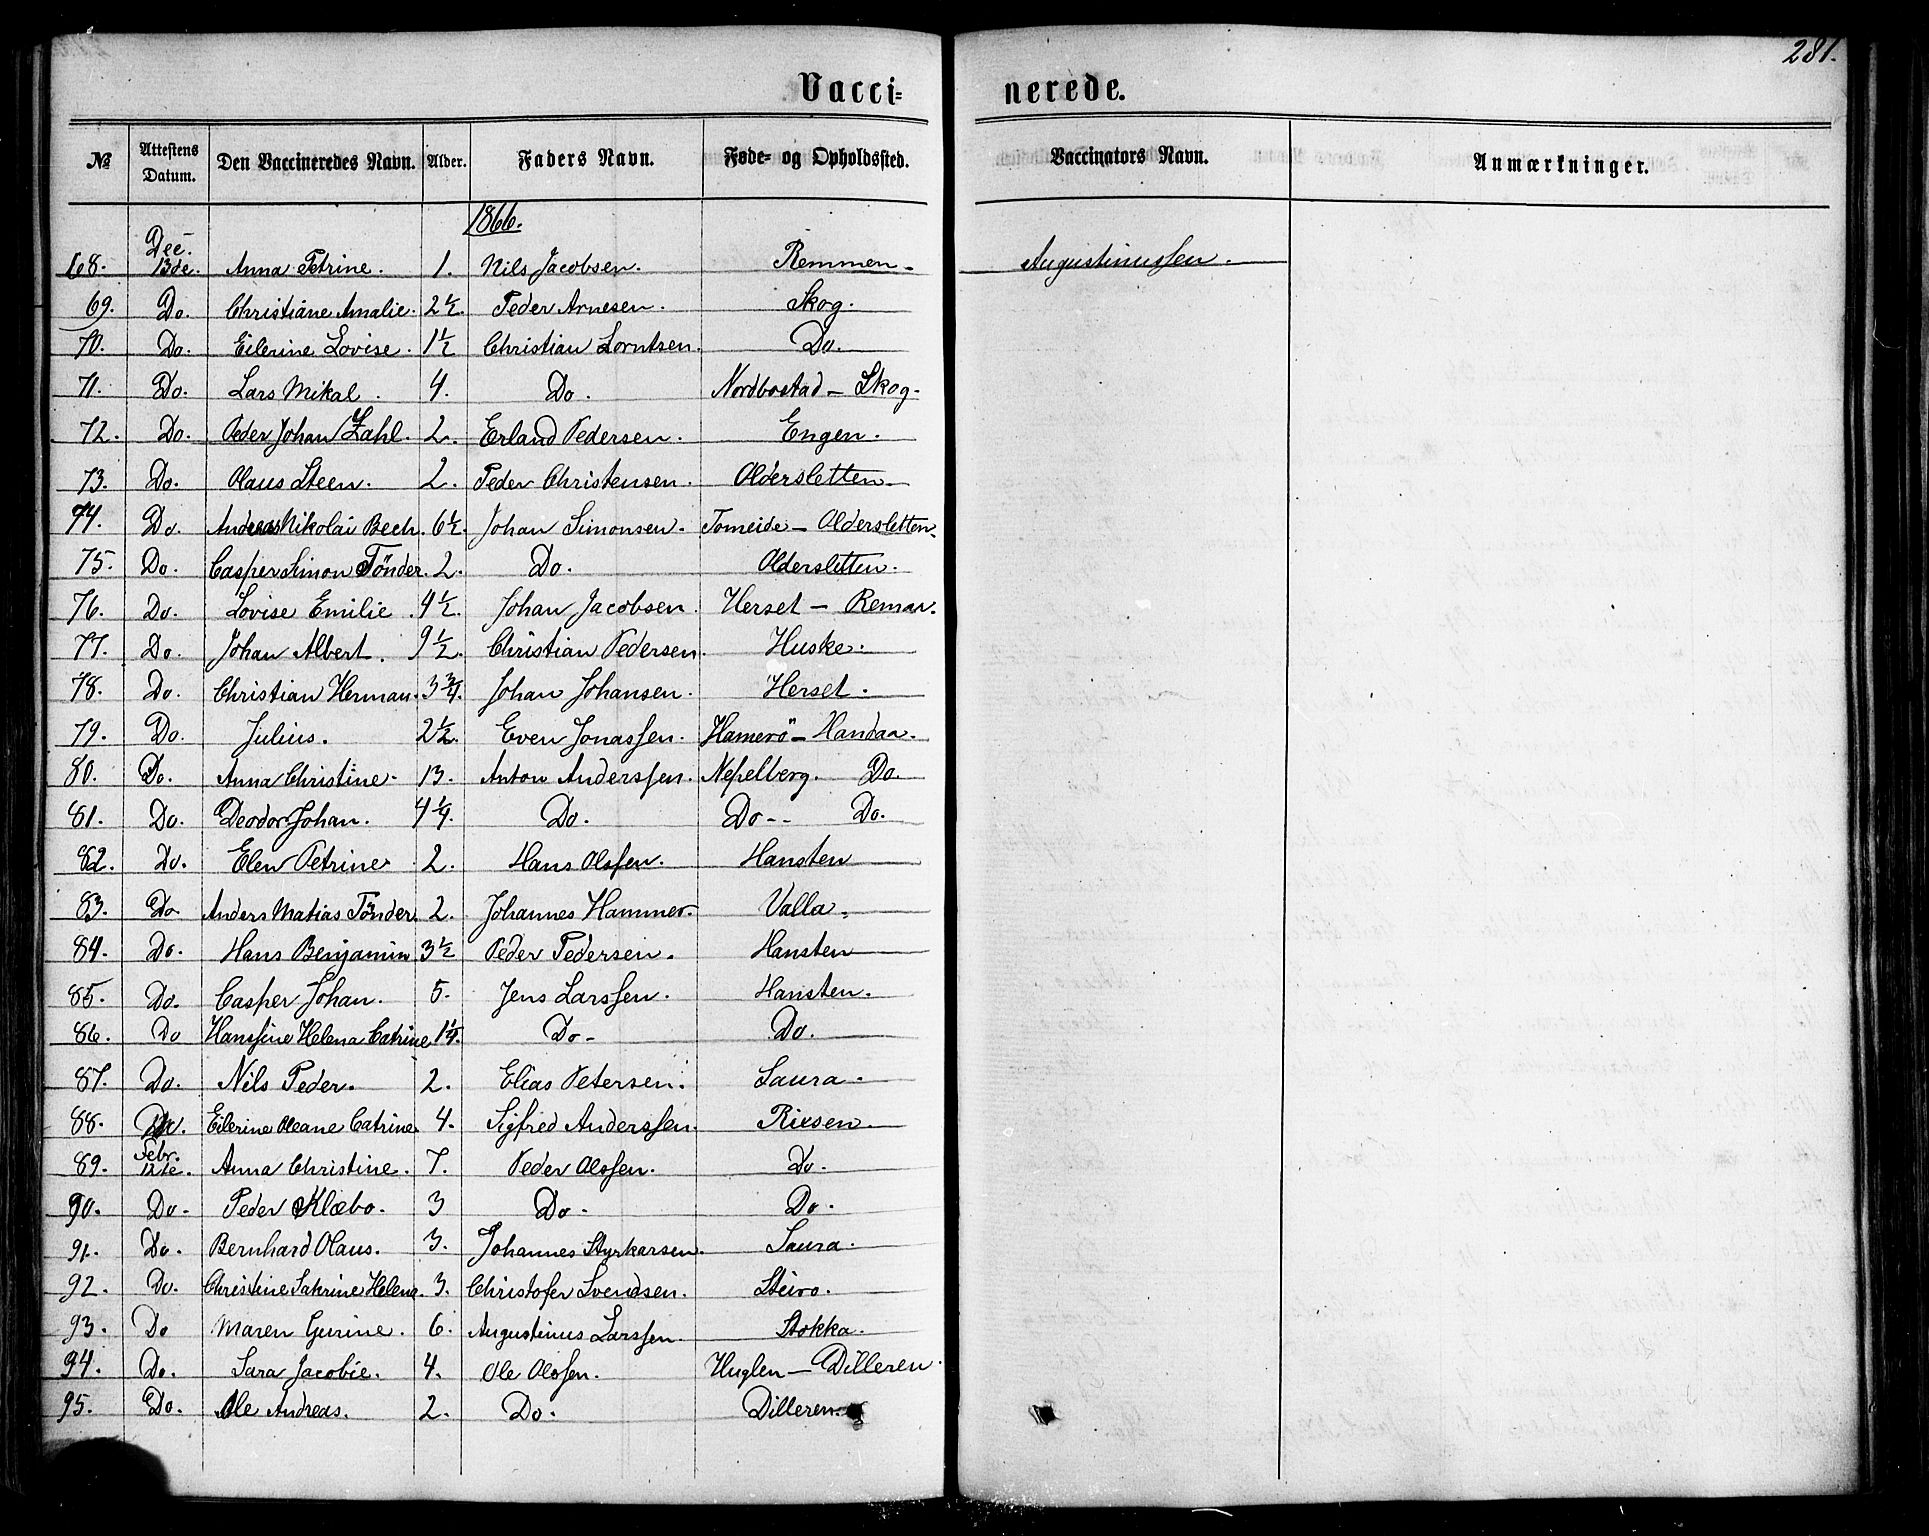 281.
Vacci= nerede.
№ Attestens Datum. Den Vaccineredes Navn. Alder. Faders Navn. Føde- og Opholdssted. Vaccinators Navn. Anmærkninger.
1866.
68. Dec. 13de. Anna Petrine. 1. Nils Jacobsen. Remmen. Augustinussen.
69. Do. Christiane Amalie. 2½. Peder Arnesen. Skog.
70. Do. Eilerine Lovise. 1½ Christian Lorntsen. Do.
71. Do. Lars Mikal. 4. Do. Nordbostad – Skog.
72. Do. Peder Johan Zahl. 2. Erland Pedersen. Engen.
73. Do. Olaus Steen. 2. Peder Christensen. Oldersletten.
74. Do. Andreas Nikolai Bech. 6½. Johan Simonsen. Tomeide – Oldersletten.
75. Do. Casper Simon Tönder. 2. Do. Oldersletten.
76. Do. Lovise Emilie. 4½. Johan Jacobsen. Herset – Remar.
77. Do. Johan Albert. 9½. Christian Pedersen. Huske.
78. Do. Christian Herman. 3¾. Johan Johansen. Herset.
79. Do. Julius. 2½. Even Jonassen. Hamerö – Handaa.
80. Do. Anna Christine. 13. Anton Anderssen. Nepelberg. Do.
81. Do. Deodor Johan. 4¼. Do. Do. Do.
82. Do. Elen Petrine 2. Hans Olssen. Hansten
83. Do Anders Matias Tönder. 2. Johannes Hammer. Valla.
84. Do. Hans Benjamin 3½ Peder Pedersen. Hansten
85. Do. Casper Johan. 5. Jens Larssen. Hansten.
86. Do Hanssine Helena Catrine 1¼. Do – Do.
87. Do. Nils Peder. 2. Elias Petersen. Saura.
88. Do. Eilerine Oleane Catrine. 4. Sigfred Anderssen. Riesen.
89. Febr. 12te. Anna Christine. 7. Peder Olssen. Do.
90. Do – Peder Klæbo. 3 Do – Do.
91. Do. Bernhard Olaus. 3. Johannes Styrkarsen. Saura.
92. Do. Christine Catrine Helena. 3. Christofer Svendsen. Steiro.
93. Do Maren Gurine. 6. Augustinus Larssen. Stokka.
94. Do. Sara Jacobie. 4. Ole Olssen. Huglen – Dilleren.
95. Do. Ole Andreas. 2. Do. Dilleren.